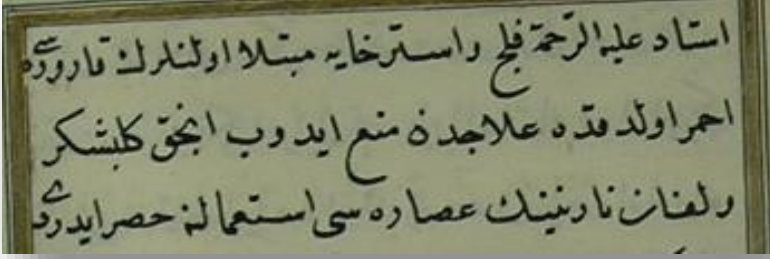 استاد عليه الرحمة فلج واسترخايه مبتلا اولنلرك قاروره سى
احمر اولدقده علاجدن منع ايدوب انجق كلبشكر
ولغنان نارنينك عصاره سى استعمالنه حصر ايدردى